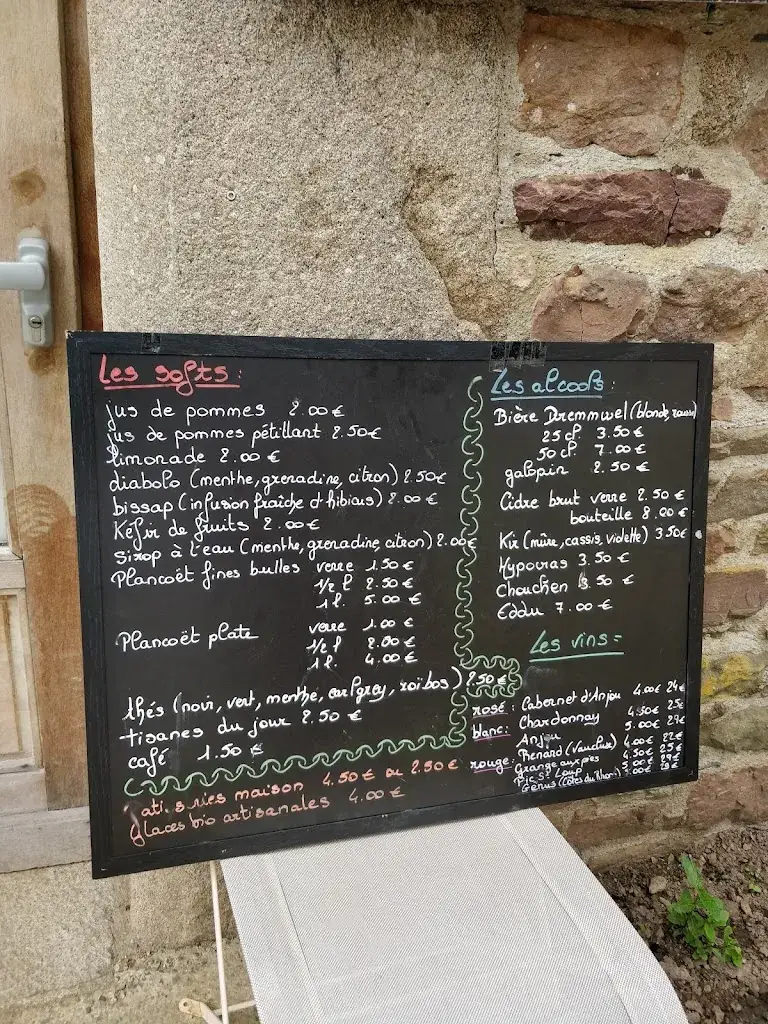 Les softs :
jus de pommes 2.00 €
jus de pommes pétillant 2.50 €
limonade 2.00 €
diabolo (menthe, grenadine, citron) 2.50€
bissap (infusion fraîche d'hibicus) 2.00 €
Kéfir de fruits 2.00 €
Sirop à l'eau (menthe, grenadine, citron) 2.00€
Plancoët fines bulles verre 1.50 €
1/2 l 2.50 €
1 l. 5.00 €
Plancoët plate verre 1.00 €
1/2 l 2.00 €
1 l. 4.00 €
thés (noir, vert, menthe, earl grey, roibos) 2.50 €
tisanes du jour 2.50 €
café 1.50 €
Patisseries maison 4.50 € ou 2.50 €
glaces bio artisanales 4.00 €
Les alcools :
Bière Deremmwel (blonde, rousse)
25 cl. 3.50 €
50 cl. 7.00 €
galopin 2.50 €
Cidre brut verre 2.50 €
bouteille 8.00 €
Kir (mûre, cassis, violette) 3.50€
Hypocras 3.50 €
Chouchen 3.50 €
Eddu 7.00 €
Les vins =
rosé : Cabernet d'Anjou 4.00€ 24€
blanc : Chardonnay 4.50€ 25€
Anjou 5.00€ 27€
rouge : Renard (Vaucluse) 4.00€ 22€
Grange aux pies 4.50€ 25€
Pic St Loup 5.00€
Genus (Côtes du Rhône)